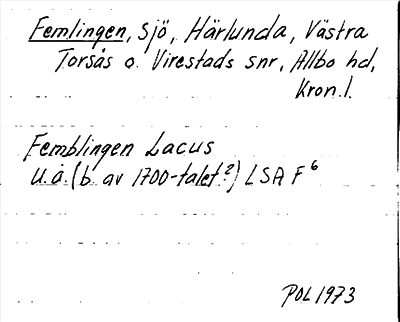 Femlingen, sjö, Härlunda, Västra
Torsås o. Virestads snr, Allbo hd,
Kron. l.
Femblingen Lacus
U.å. (b. av 1700-talet?) LSA F 6
POL 1973